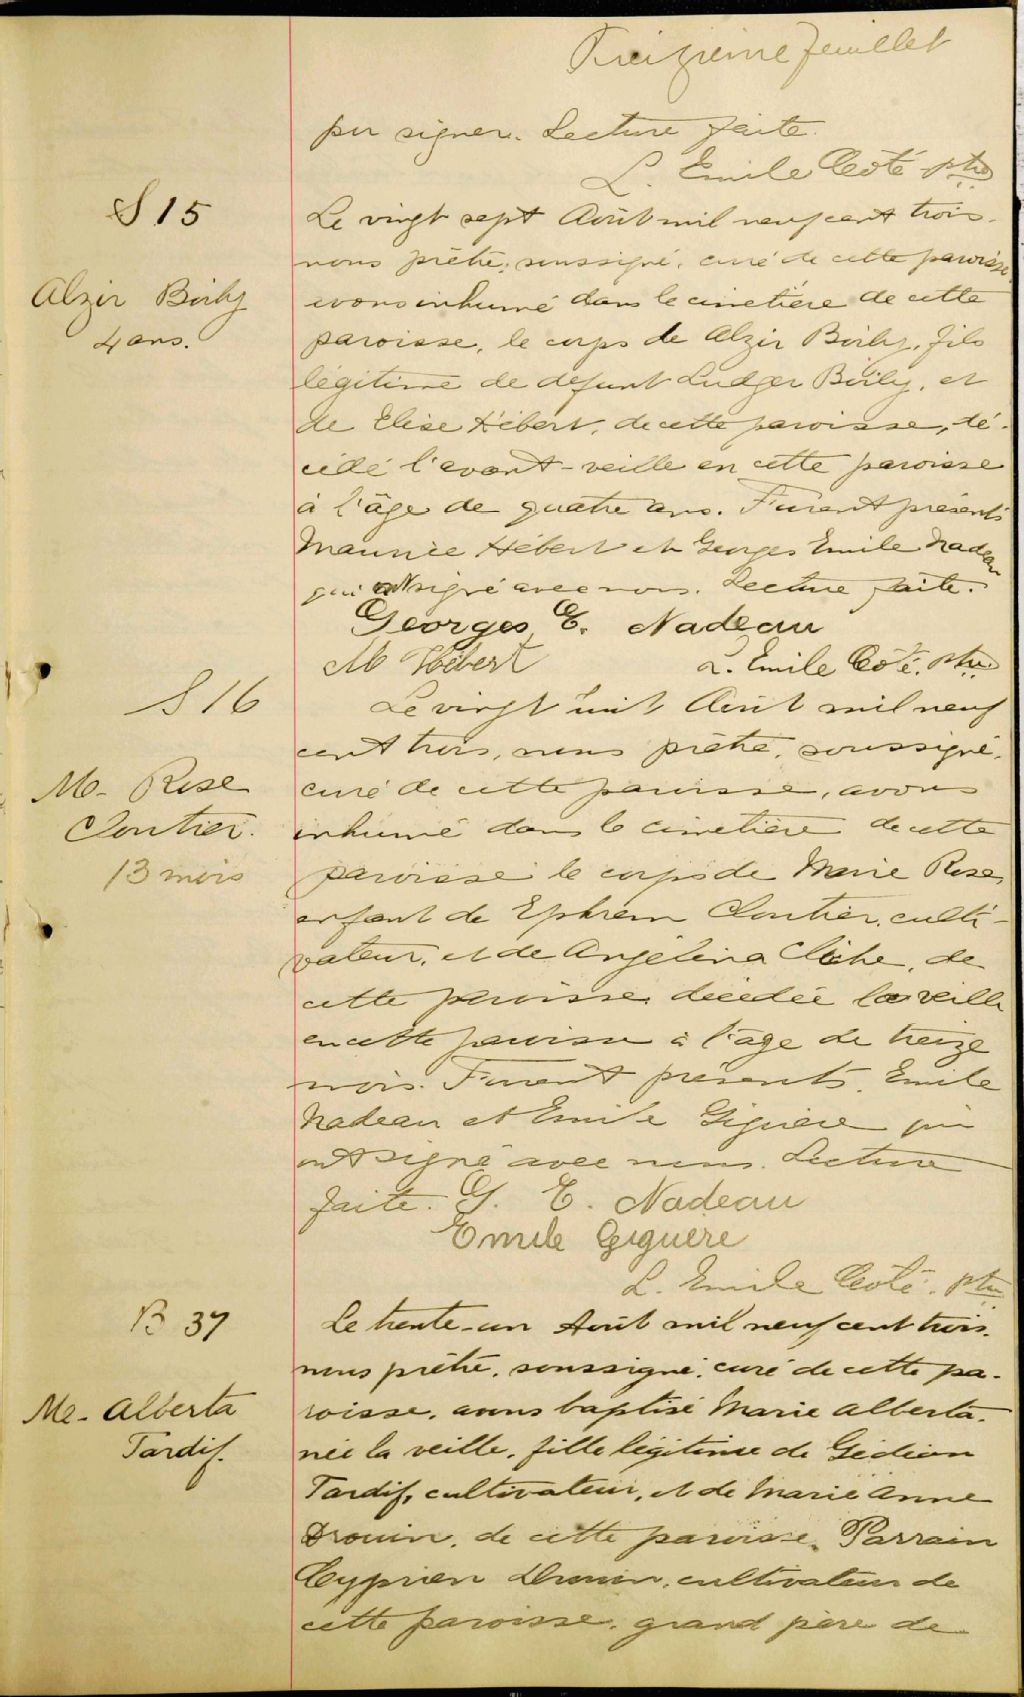 Treizième feuillet
pu signer. Lecture faite.
L. Emile Coté ptre
S 15
Alzir Boily
4 ans.
Le vingt sept Août mil neuf cent trois.
nous prêtre, soussigné, curé de cette paroisse
avons inhumé dans le cimetière de cette
paroisse, le corps de Alzir Boily, fils
légitime de défunt Ludger Boily, et
de Elise Hébert, de cette paroisse, dé-
cédé l'avant-veille en cette paroisse
à l'âge de quatre ans. Furent présents
Maurice Hébert et Georges Emile Nadeau
qui ont signé avec nous. Lecture faite.
Georges E. Nadeau
M Hébert L. Emile Coté. ptre
S 16
Me- Rose
Cloutier.
13 mois
Le vingt huit Août mil neuf
cent trois, nous prêtre, soussigné,
curé de cette paroisse, avons
inhumé dans le cimetière de cette
paroisse le corps de Marie Rose,
enfant de Ephrem Cloutier, culti-
vateur, et de Angélina Cliche, de
cette paroisse, décédée la veille
en cette paroisse à l'âge de treize
mois. Furent présents, Emile
Nadeau et Emile Giguère qui
ont signé avec nous. Lecture
faite. G. E. Nadeau
Emile Giguère
L. Emile Coté. ptre
B 37
Me- Alberta
Tardif.
Le trente-un Août mil neuf cent trois.
nous prêtre, soussigné, curé de cette pa-
roisse, avons baptisé Marie Alberta,
née la veille, fille légitime de Gédéon
Tardif, cultivateur, et de Marie Anne
Drouin, de cette paroisse. Parrain
Cyprien Drouin, cultivateur de
cette paroisse, grand père de